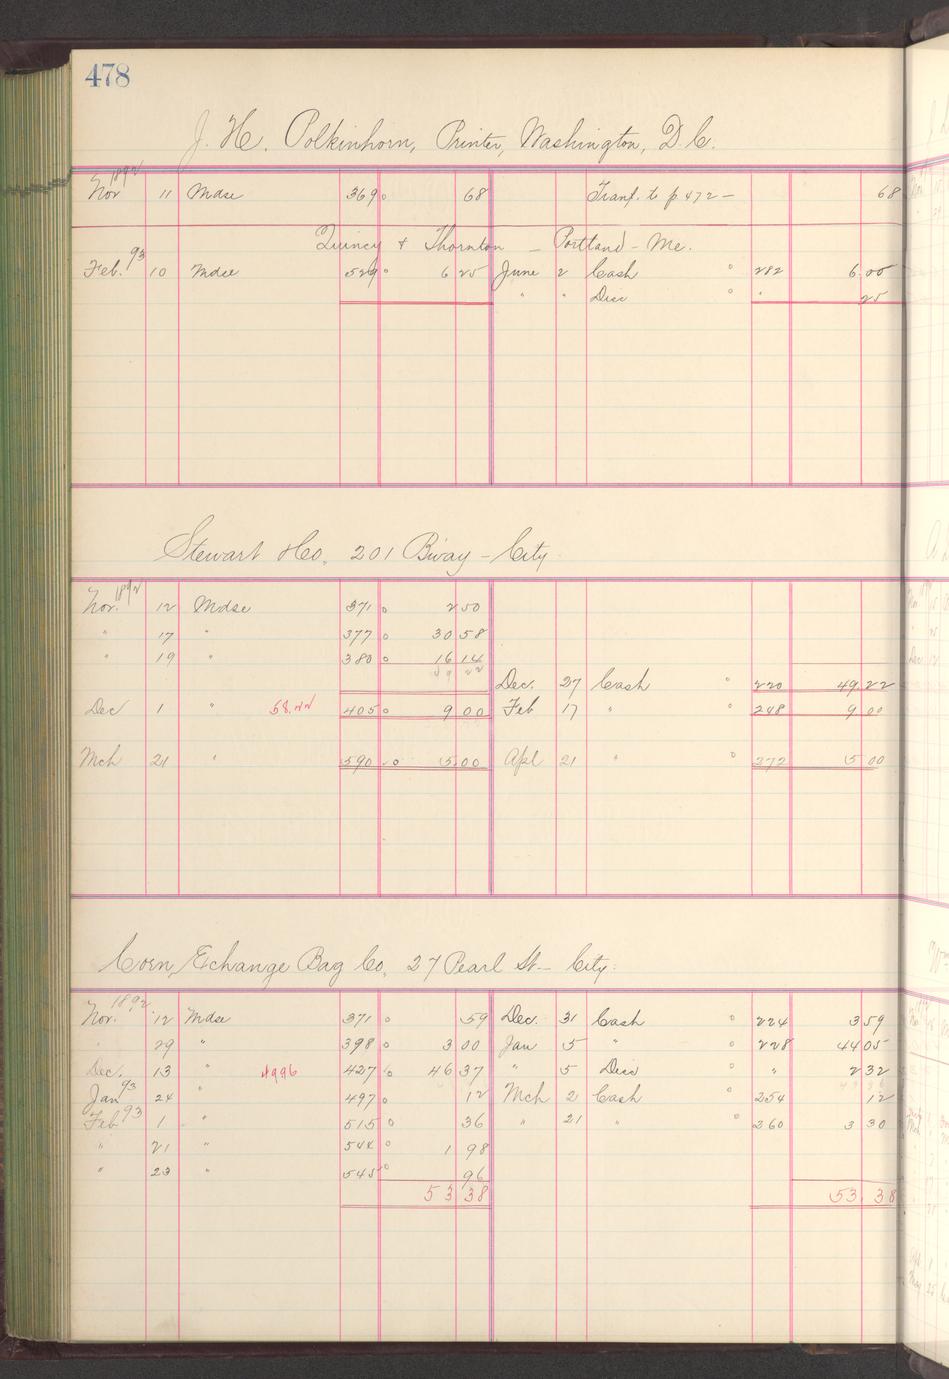 478
J. H. Polkinhorn, Printer, Washington, D.C.
1892
Nov 11 Mdse 369 68 Transf. to p 472 — 68
Quincy & Thornton — Portland — Me.
Feb. 93 10 Mdse 529 6 25 June 2 Cash " 282 6.00
" " Disc " " 25
Stewart & Co. 201 Bway — City
1892
Nov. 12 Mdse 371 2 50
" 17 " 377 30 58
" 19 " 380 16 14
49 22
Dec. 27 Cash " 220 49.22
Dec 1 " 58.22 405 9 00 Feb 17 " " 248 9 00
Mch 21 " 590 5.00 Apl 21 " " 272 5 00
Corn Echange Bag Co. 27 Pearl St — City.
1892
Nov. 12 Mdse 371 59 Dec. 31 Cash " 224 3 59
" 29 " 398 3 00 Jan 5 " " 228 44 05
Dec. 13 " 4996 427 46 37 " 5 Disc " " 2 32
49 96
Jan 93 24 " 497 12 Mch 2 Cash " 254 12
Feb 93 1 " 515 36 " 21 " " 260 3 30
" 21 " 544 1 98
" 23 " 545 96
53 38 53 38